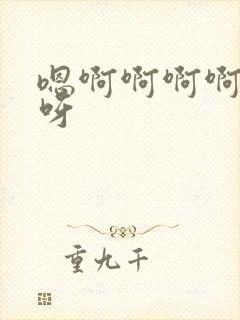 嗯啊啊啊啊
呀
重九千